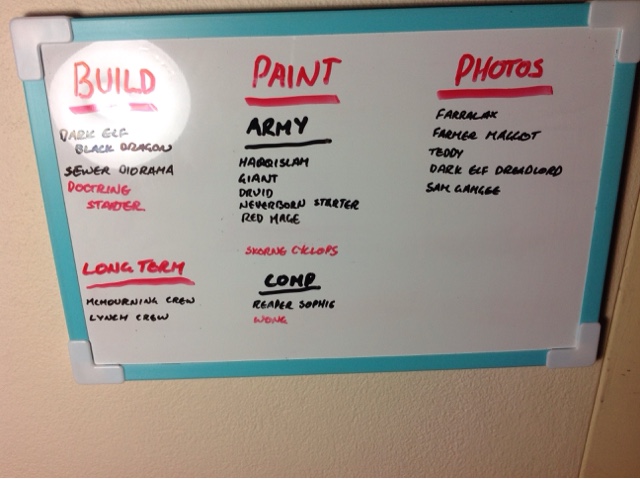 BUILD
DARK ELF
BLACK DRAGON
SEWER DIORAMA
DOCTRING
STARTER
LONG TERM
MCMOURNING CREW
LYNCH CREW
PAINT
ARMY
HAQQISLAM
GIANT
DRUID
NEVERBORN STARTER
RED MAGE
SKORNE CYCLOPS
COMP
REAPER SOPHIE
WONG
PHOTOS
FARRALAX
FARMER MAGGOT
TEDDY
DARK ELF DREADLORD
SAM GAMGEE